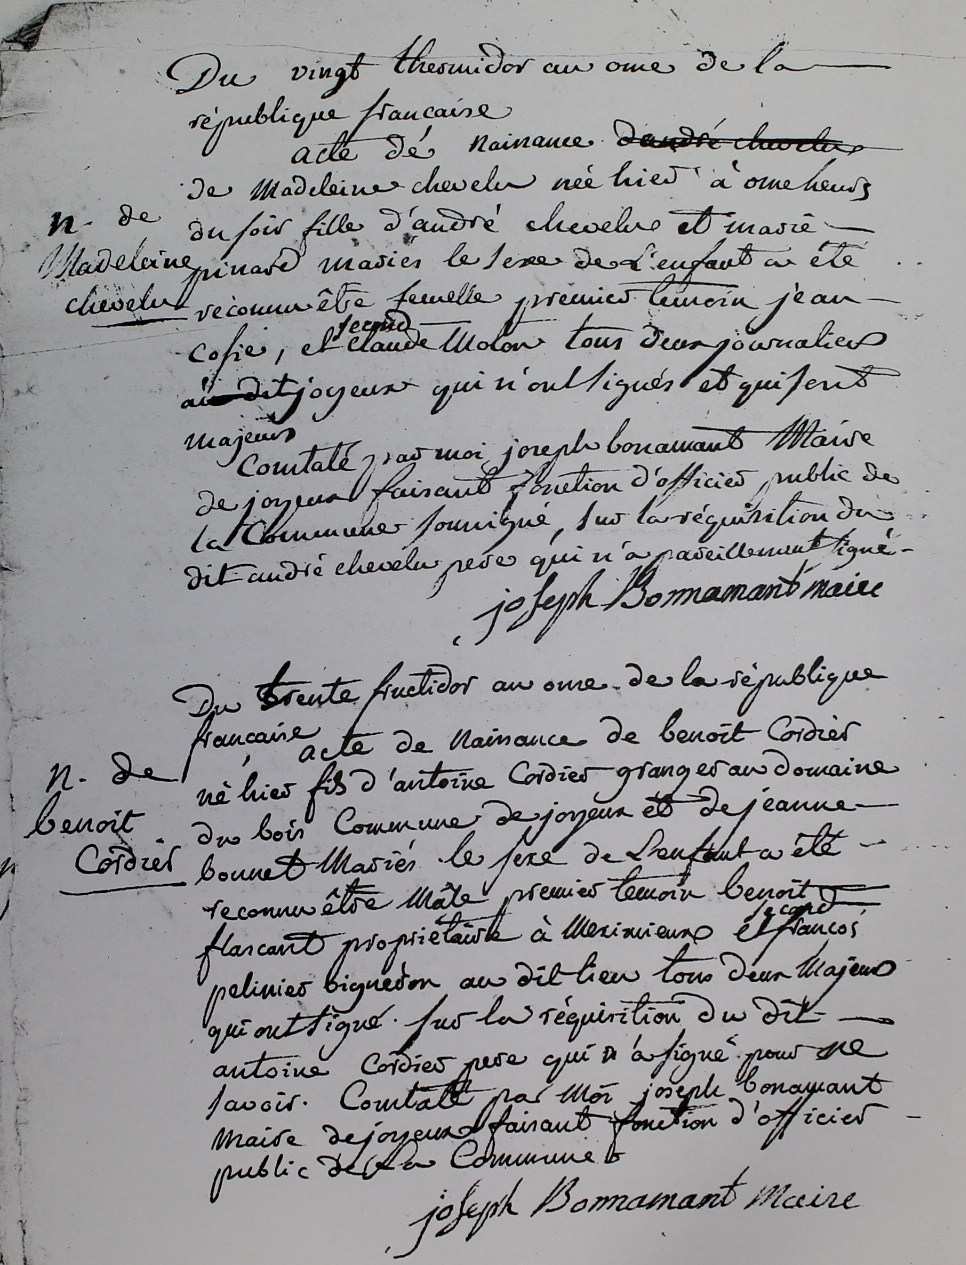 Du vingt thermidor an onze de la
république française
acte de naissance d'andré chevelu
de Madeleine chevelu née hier à onze heures
n. de
Madeleine
chevelu
du soir fille d'andré chevelu et marie
pinard mariés le sexe de L'enfant a été
reconnu être femelle premier temoin jean
cosie, et second claude Moton tous deux journaliers
au dit joyeux qui n'ont signés et qui sont
majeurs
Constaté par moi joseph bonamant Maire
de joyeux faisant fonction d'officier public de
la Commune soussigné, sur la réquisition du
dit andré chevelu pere qui n'a pareillement signé
joseph Bonnamant maire
Du trente fructidor an onze de la république
française
acte de naissance de benoit Cordier
n. de
benoit
Cordier
né hier fils d'antoine Cordier granger au domaine
du bois Commune de joyeux et de jeanne
bonnet Mariés le sexe de L'enfant a été
reconnu être Mâle premier temoin benoit
flascant propriétaire à Meximieux et second françois
pelinier vigneron au dit lieu tous deux Majeurs
qui ont signé. sur la réquisition du dit
antoine Cordier pere qui n'a signé pour ne
savoir. Constaté par Moi joseph bonamant
maire de joyeux faisant fonction d'officier
public de la Commune
joseph Bonnamant Maire